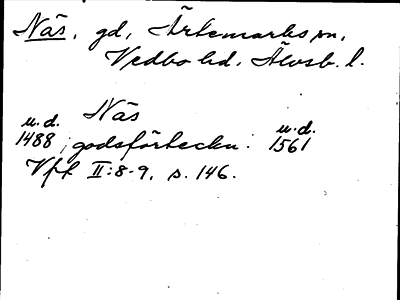 Näs, gd, Ärtemarks sn,
Vedbo hd, Älvsb. l.
Näs
u.d. u.d.
1488 i godsförteckn. 1561
Vfk II:8-9, s. 146.